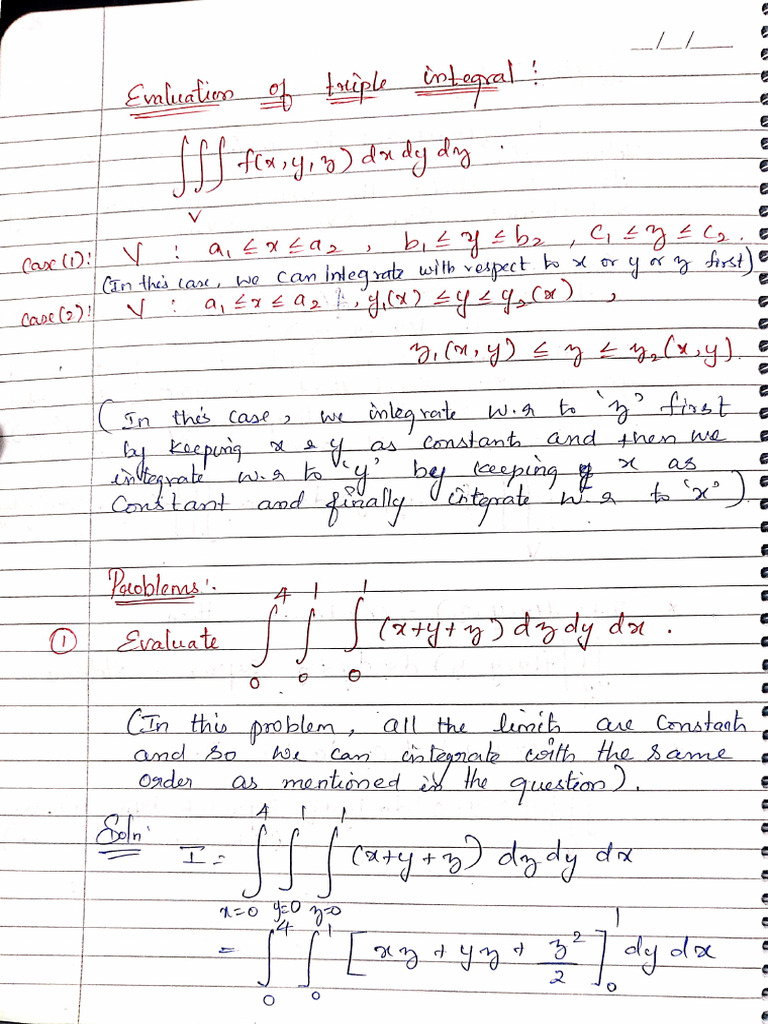 _/_/_
Evaluation of triple integral:
∫∫∫ f(x,y,z) dx dy dz.
V
Case(1): V : a₁ ≤ x ≤ a₂ , b₁ ≤ y ≤ b₂ , c₁ ≤ z ≤ c₂.
(In this case, we can integrate with respect to x or y or z first)
Case(2): V : a₁ ≤ x ≤ a₂ , y₁(x) ≤ y ≤ y₂(x) ,
z₁(x,y) ≤ z ≤ z₂(x,y).
(In this case, we integrate w.r to 'z' first
by keeping x & y as constants and then we
integrate w.r to 'y' by keeping x as
constant and finally integrate w.r to 'x')
Problems:
4 1 1
① Evaluate ∫ ∫ ∫ (x+y+z) dz dy dx.
0 0 0
(In this problem, all the limits are constants
and so we can integrate with the same
order as mentioned in the question).
Soln:
4 1 1
I = ∫ ∫ ∫ (x+y+z) dz dy dx
x=0 y=0 z=0
4 1 1
= ∫ ∫ [xz + yz + z²/2] dy dx
0 0 0